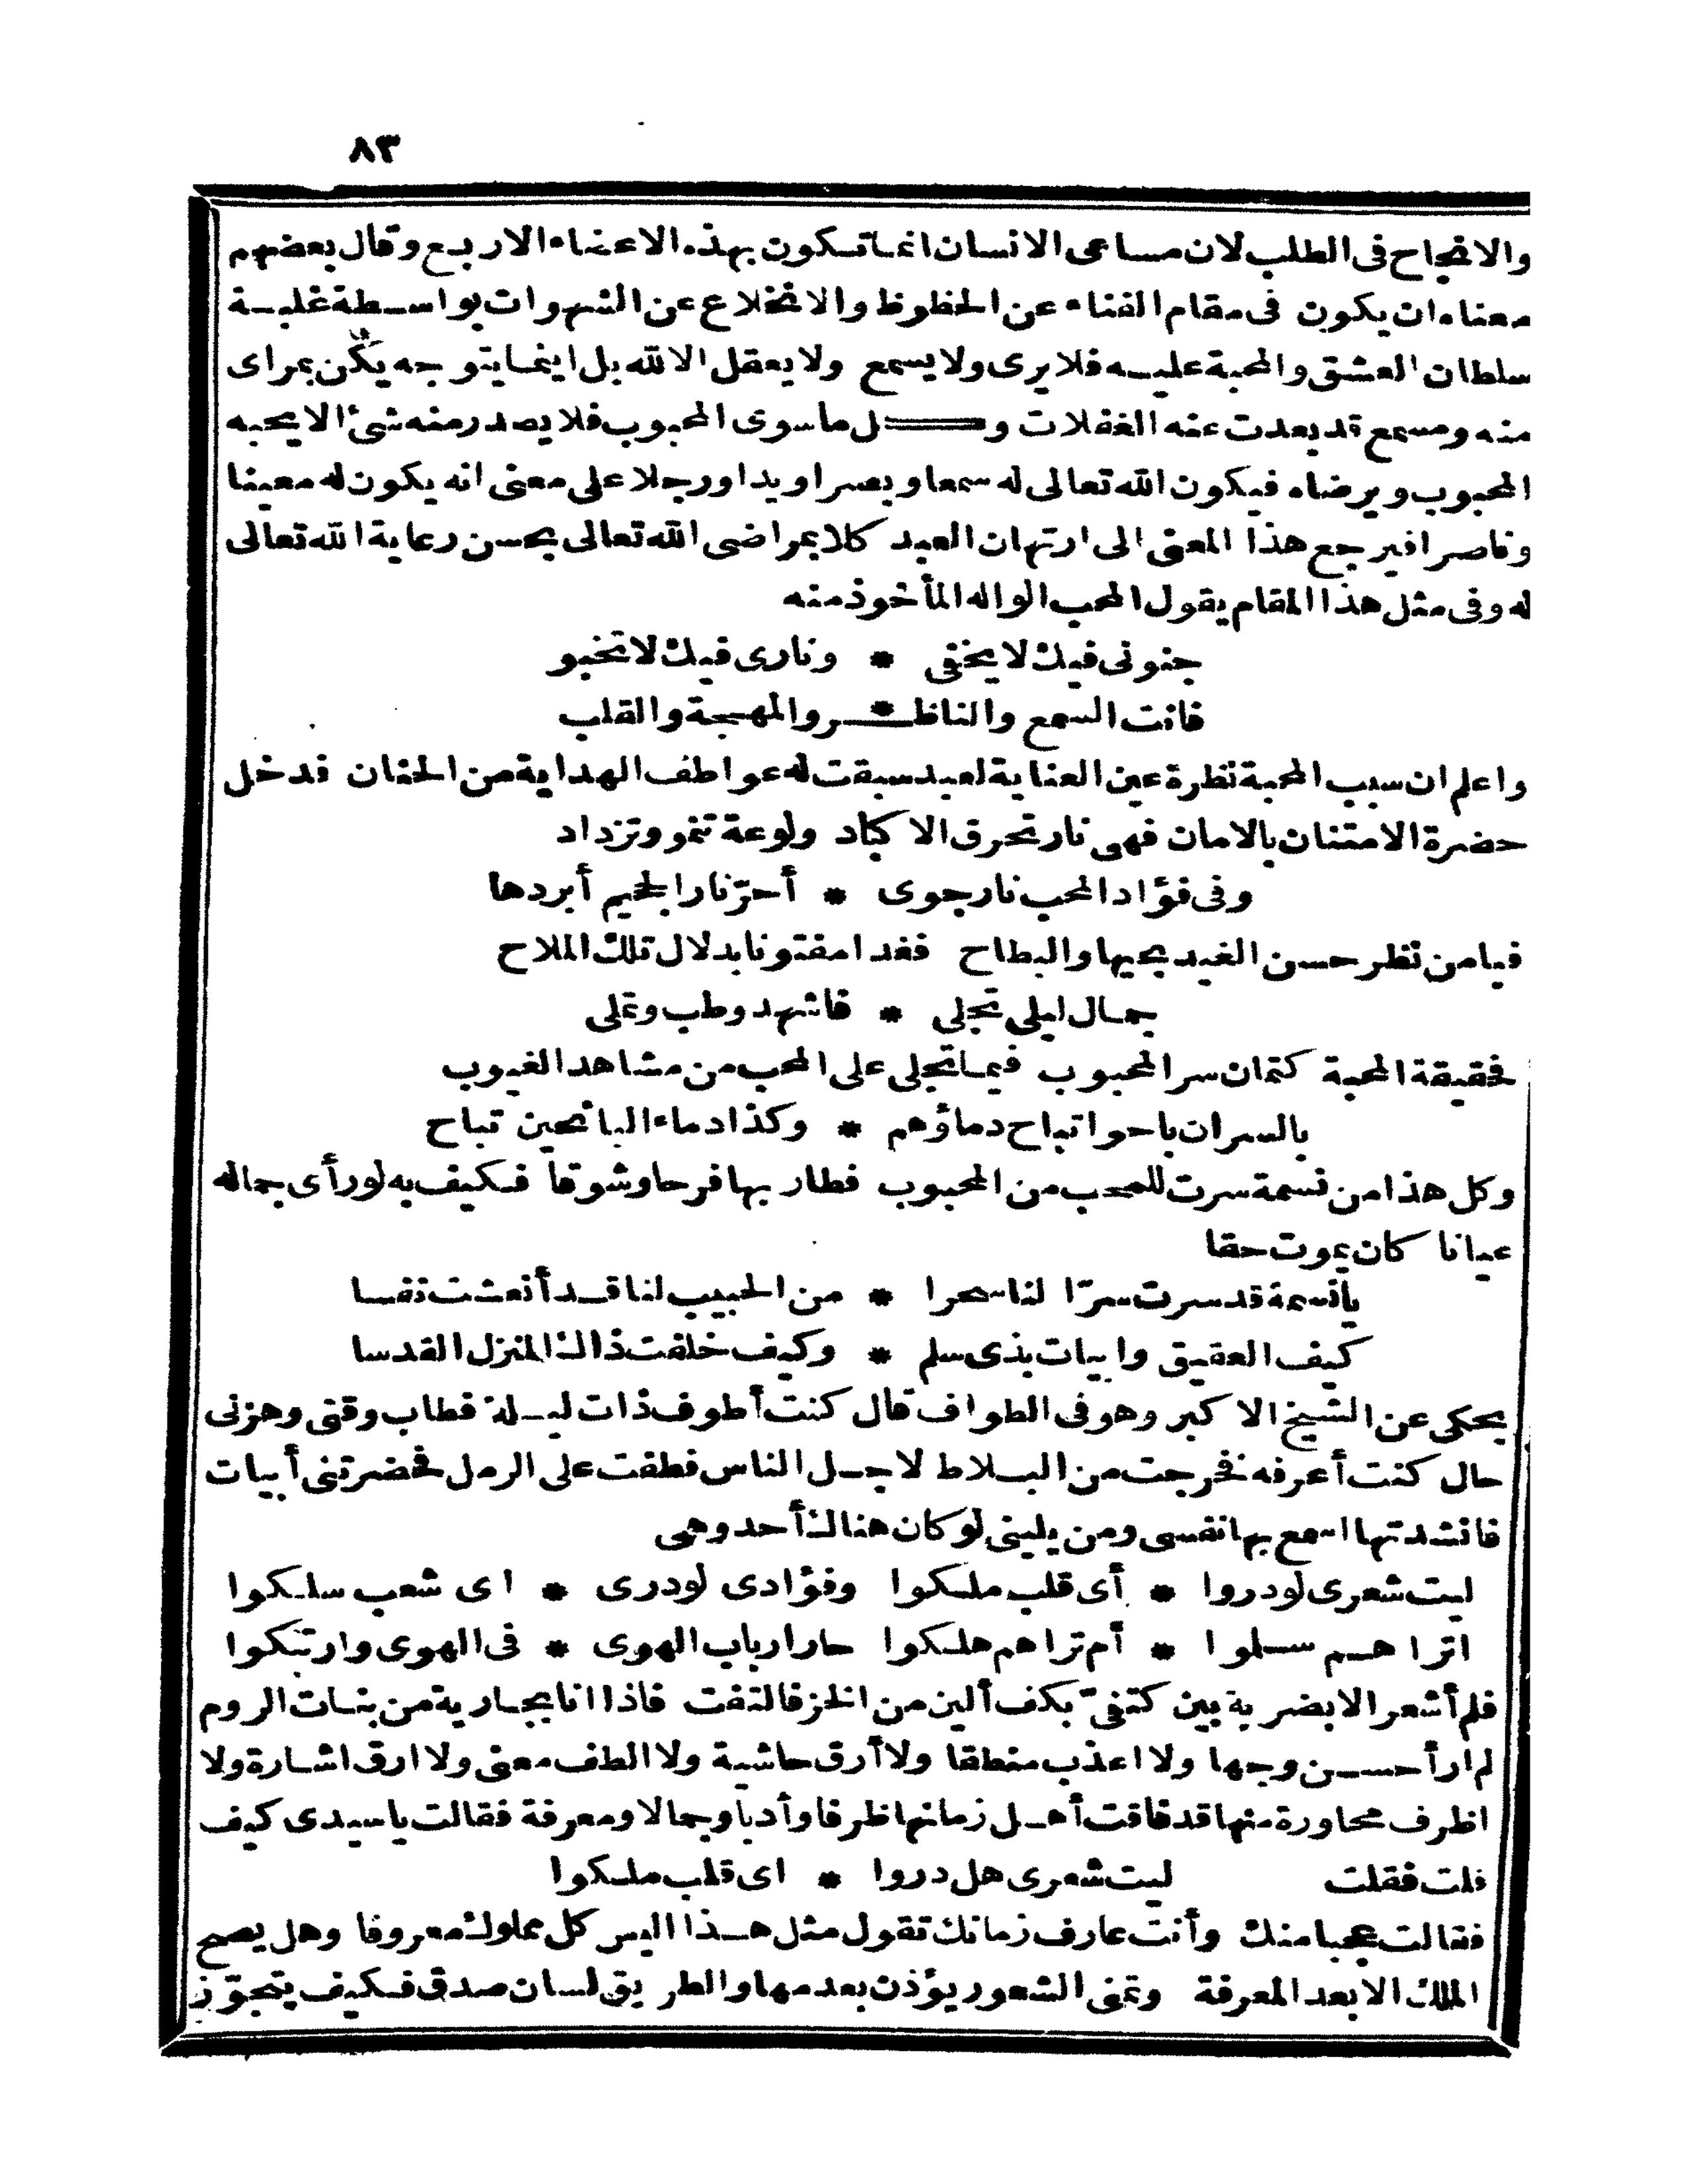 ٨٣
والانجاح فى الطلب لان مساعى الانسان انما تكون بهذه الاعضاء الاربع وقال بعضهم
معناه ان يكون فى مقام الفناء عن الحظوظ والانخلاع عن الشهوات بواسطة غلبة
سلطان العشق والمحبة عليه فلا يرى ولا يسمع ولا يعقل الا لله بل اينما يتوجه يكن بمراى
منه ومسمع قد بعدت عنه الغفلات وكل ما سوى المحبوب فلا يصدر منه شئ الا يحبه
المحبوب ويرضاه فيكون الله تعالى له سمعا وبصرا ويدا ورجلا على معنى انه يكون له معينا
وناصرا فيرجع هذا المعنى الى ارتهان العبد كلا بمراضى الله تعالى بحسن رعاية الله تعالى
له وفى مثل هذا المقام يقول المحب الواله المأخوذ منه
جنونى فيك لا يخفى * ونارى فيك لا تخبو
فانت السمع والناظـ * ـر والمهجة والقلب
واعلم ان سبب المحبة نظرة عين العناية لعبد سبقت له عواطف الهداية من الحنان فدخل
حضرة الامتنان بالامان فهى نار تحرق الاكباد ولوعة تنمو وتزداد
وفى فؤاد المحب نار جوى * أحرّ نار الجحيم أبردها
فيا من نظر حسن الغيد بحيها والبطاح فغدا مفتونا بدلال تلك الملاح
جمال ليلى تجلى * فاشهد وطب وتملى
فحقيقة المحبة كتمان سر المحبوب فيما تجلى على المحب من مشاهد الغيوب
بالسر ان باحوا تباح دماؤهم * وكذا دماء البائحين تباح
وكل هذا من نسمة سرت للمحب من المحبوب فطار بها فرحا وشوقا فكيف به لو رأى جماله
عيانا كان يموت حقا
يا نسمة قد سرت سرّا لنا سحرا * من الحبيب لنا قد أنعشت نفسا
كيف العقيق وابيات بذى سلم * وكيف خلفت ذاك المنزل القدسا
يحكى عن الشيخ الاكبر وهو فى الطواف قال كنت أطوف ذات ليلة فطاب وقتى وهزنى
حال كنت أعرفه فخرجت من البلاط لاجل الناس فطفت على الرمل فحضرتنى أبيات
فانشدتها اسمع بها نفسى ومن يلينى لو كان هناك أحد وهى
ليت شعرى لو دروا * أى قلب ملكوا وفؤادى لو درى * اى شعب سلكوا
اتراهم سلموا * أم تراهم هلكوا حار ارباب الهوى * فى الهوى وارتبكوا
فلم أشعر الا بضربة بين كتفىّ بكف ألين من الخز فالتفت فاذا انا بجارية من بنات الروم
لم ار أحسن وجها ولا اعذب منطقا ولا أرق حاشية ولا الطف معنى ولا ارق اشارة ولا
اظرف محاورة منها قد فاقت أهل زمانها ظرفا وأدبا وجمالا ومعرفة فقالت يا سيدى كيف
قلت فقلت ليت شعرى هل دروا * اى قلب ملكوا
فقالت عجبا منك وأنت عارف زمانك تقول مثل هذا اليس كل مملوك معروفا وهل يصح
الملك الا بعد المعرفة وتمنى الشعور يؤذن بعدمها والطريق لسان صدق فكيف يتجوّز